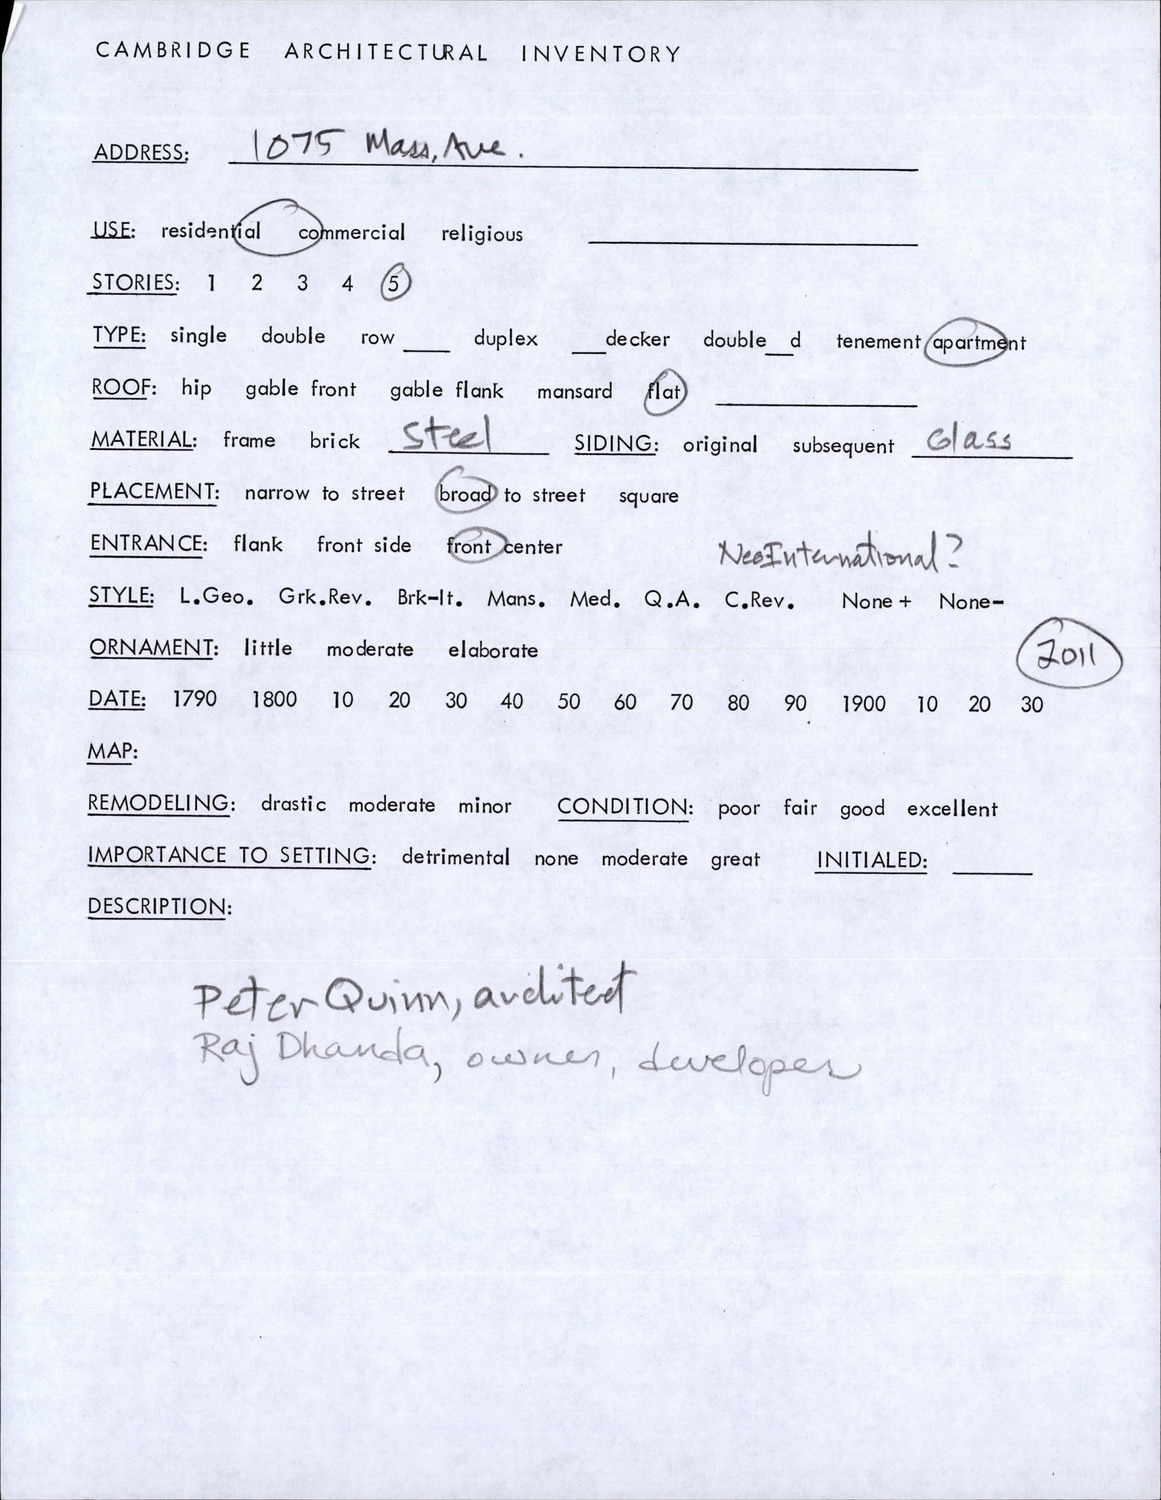 CAMBRIDGE ARCHITECTURAL INVENTORY
ADDRESS: 1075 Mass, Ave.
USE: residential commercial religious
STORIES: 1 2 3 4 5
TYPE: single double row ___ duplex ___decker double__d tenement apartment
ROOF: hip gable front gable flank mansard flat
MATERIAL: frame brick Steel SIDING: original subsequent Glass
PLACEMENT: narrow to street broad to street square
ENTRANCE: flank front side front center
NeoInternational?
STYLE: L.Geo. Grk.Rev. Brk-It. Mans. Med. Q.A. C.Rev. None + None-
ORNAMENT: little moderate elaborate
2011
DATE: 1790 1800 10 20 30 40 50 60 70 80 90 1900 10 20 30
MAP:
REMODELING: drastic moderate minor CONDITION: poor fair good excellent
IMPORTANCE TO SETTING: detrimental none moderate great INITIALED:
DESCRIPTION:
Peter Quinn, architect
Raj Dhanda, owner, developer